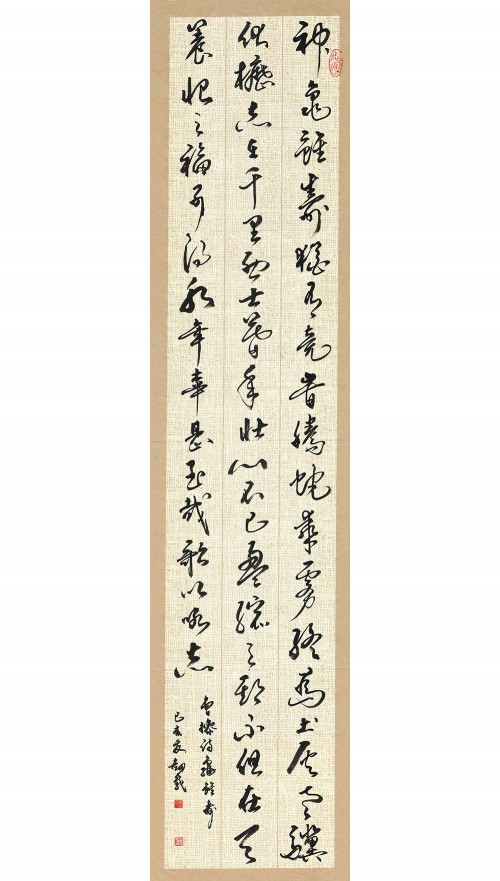 神龜雖壽猶有竟旹騰蛇乘霧終爲土灰老驥
伏櫪志在千里烈士暮年壯心不已盈縮之期不但在天
養怡之福可得永年幸甚至哉歌以咏志
曹操詩龜雖壽
己亥夏